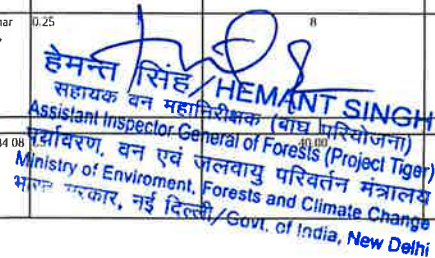 har 0.25 8
हेमन्त सिंह/HEMANT SINGH
सहायक वन महानिरीक्षक (बाघ परियोजना)
Assistant Inspector General of Forests (Project Tiger)
04 08 40.00
पर्यावरण, वन एवं जलवायु परिवर्तन मंत्रालय
Ministry of Enviroment, Forests and Climate Change
भारत सरकार, नई दिल्ली/Govt. of India, New Delhi